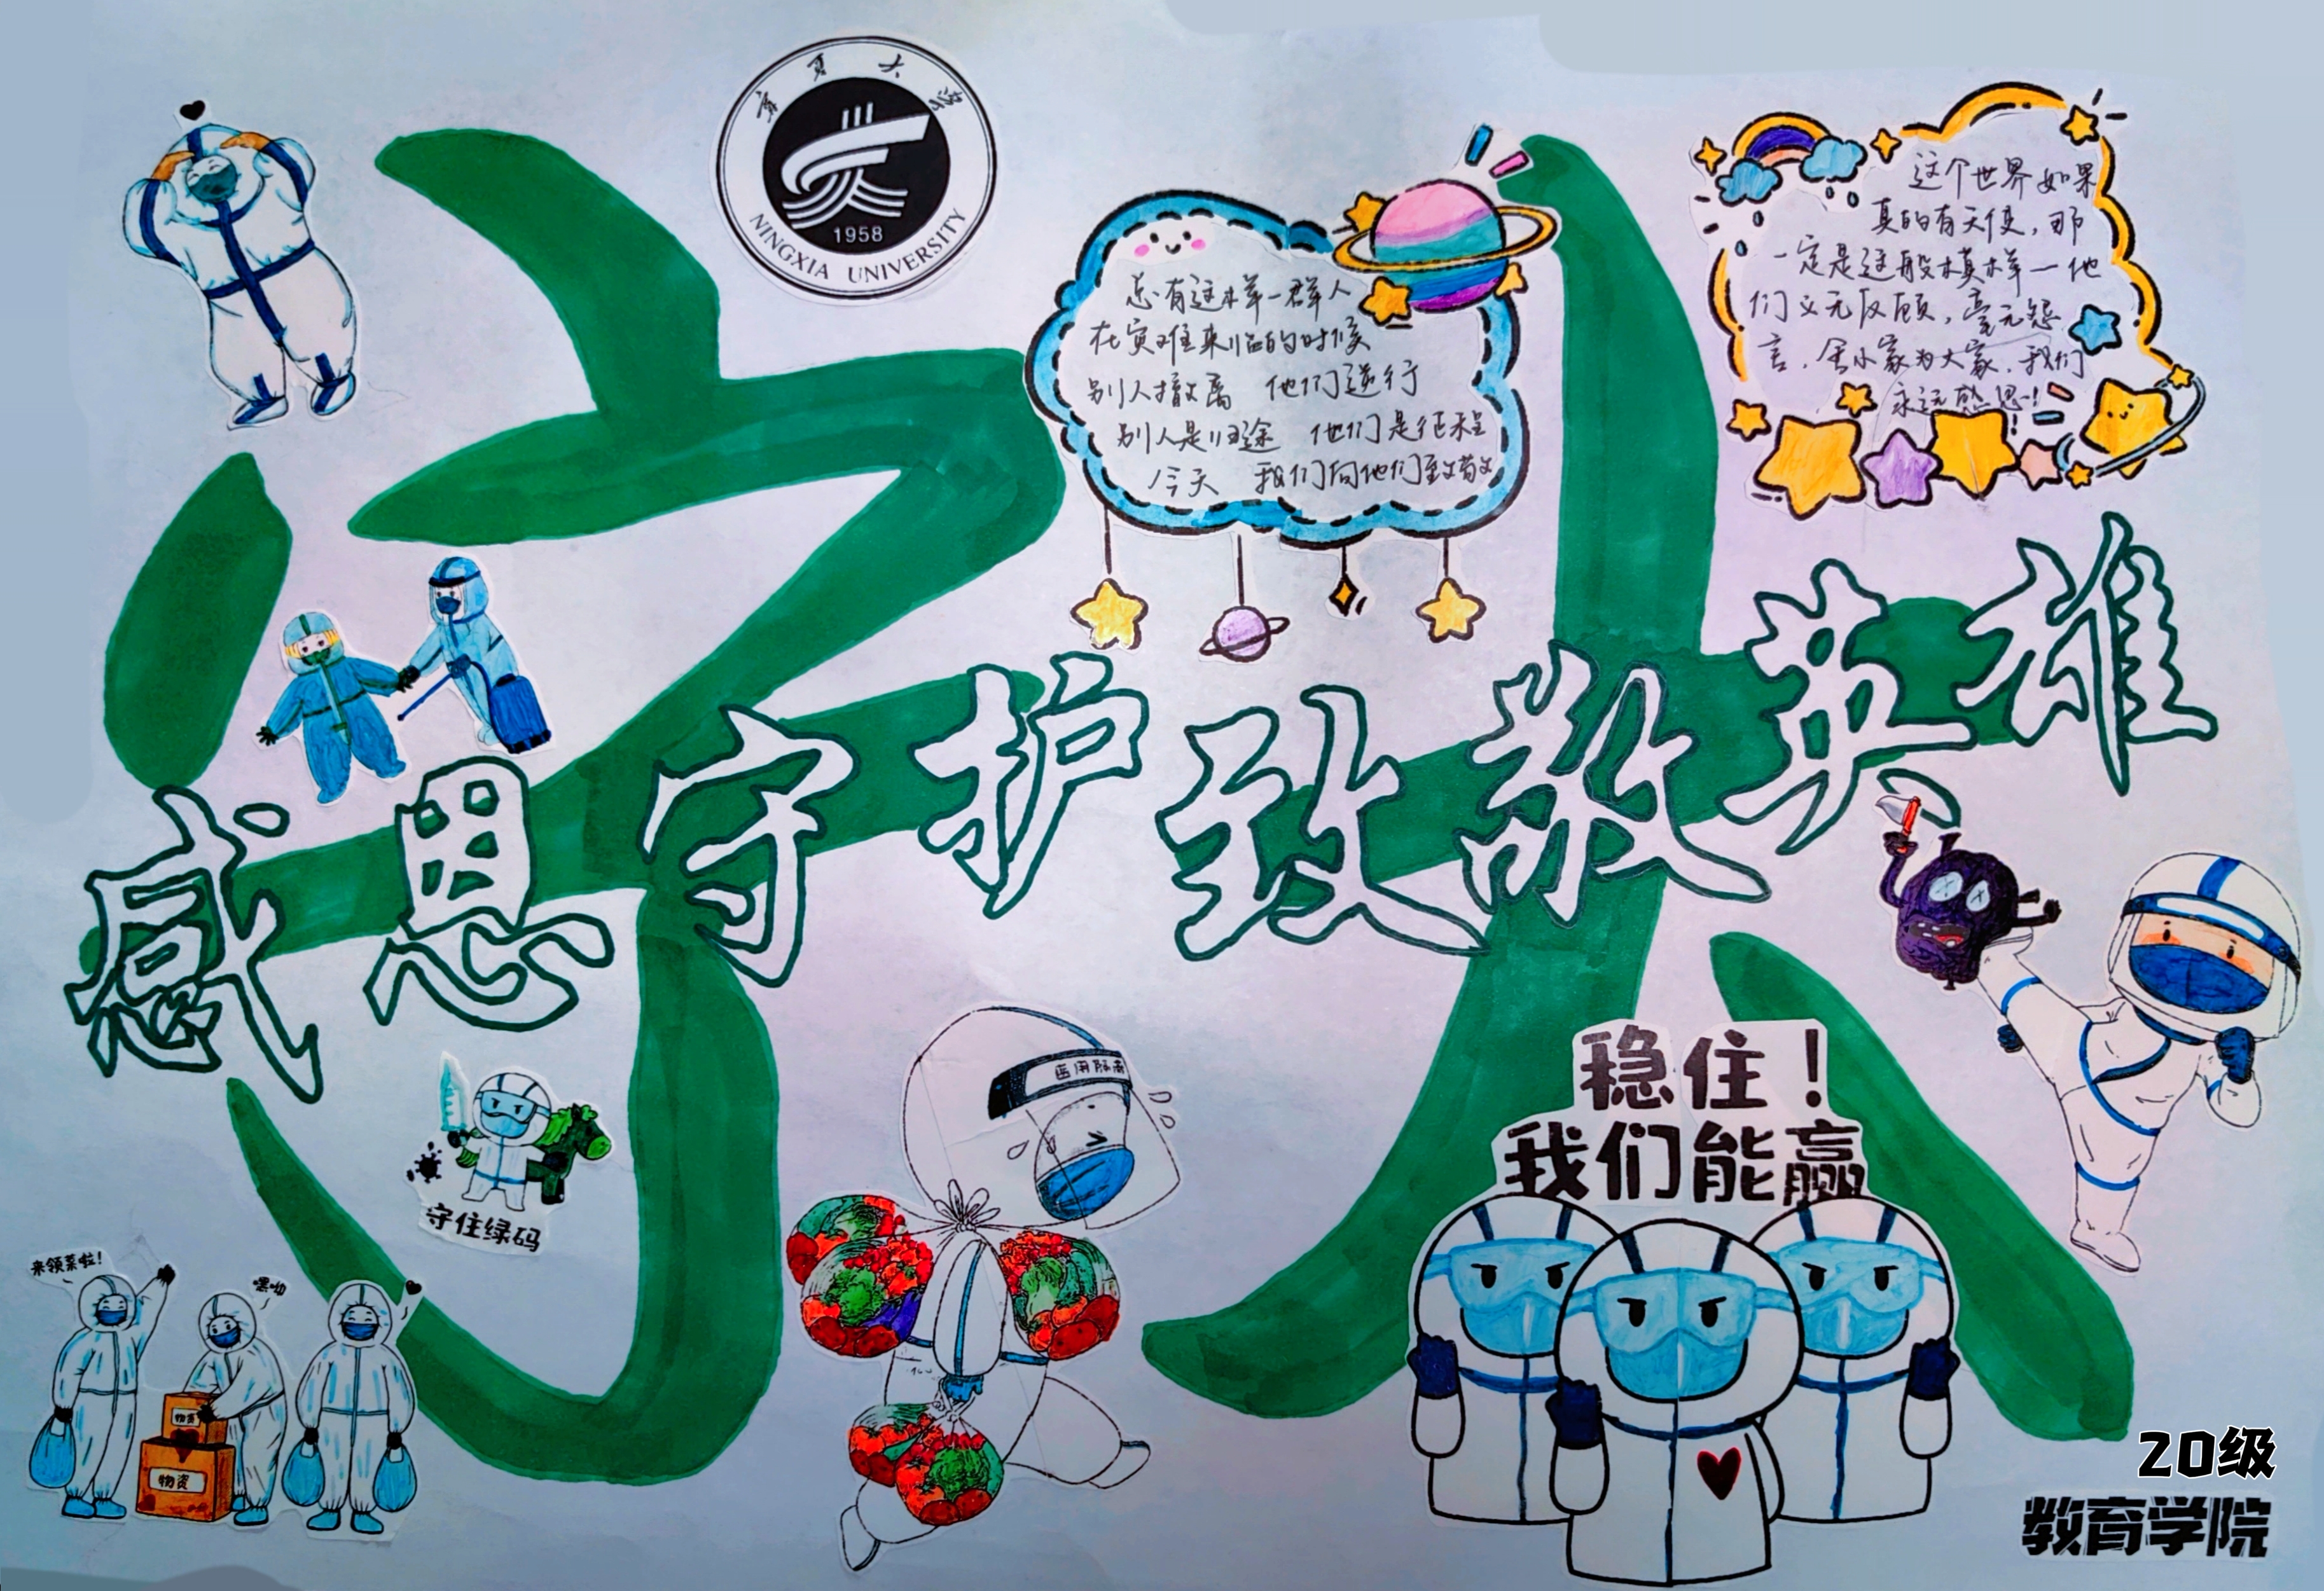 宁夏大学
1958
NINGXIA UNIVERSITY
总有这样一群人
在灾难来临的时候
别人撤离 他们逆行
别人是归途 他们是征程
今天 我们向他们致敬
这个世界如果
真的有天使，那
一定是这般模样一他
们义无反顾，毫无怨
言，舍小家为大家，我们
永远感恩！
感恩守护致敬英雄
守住绿码
来领菜啦！
嘿呦
物资
物资
稳住！
我们能赢
20级
教育学院